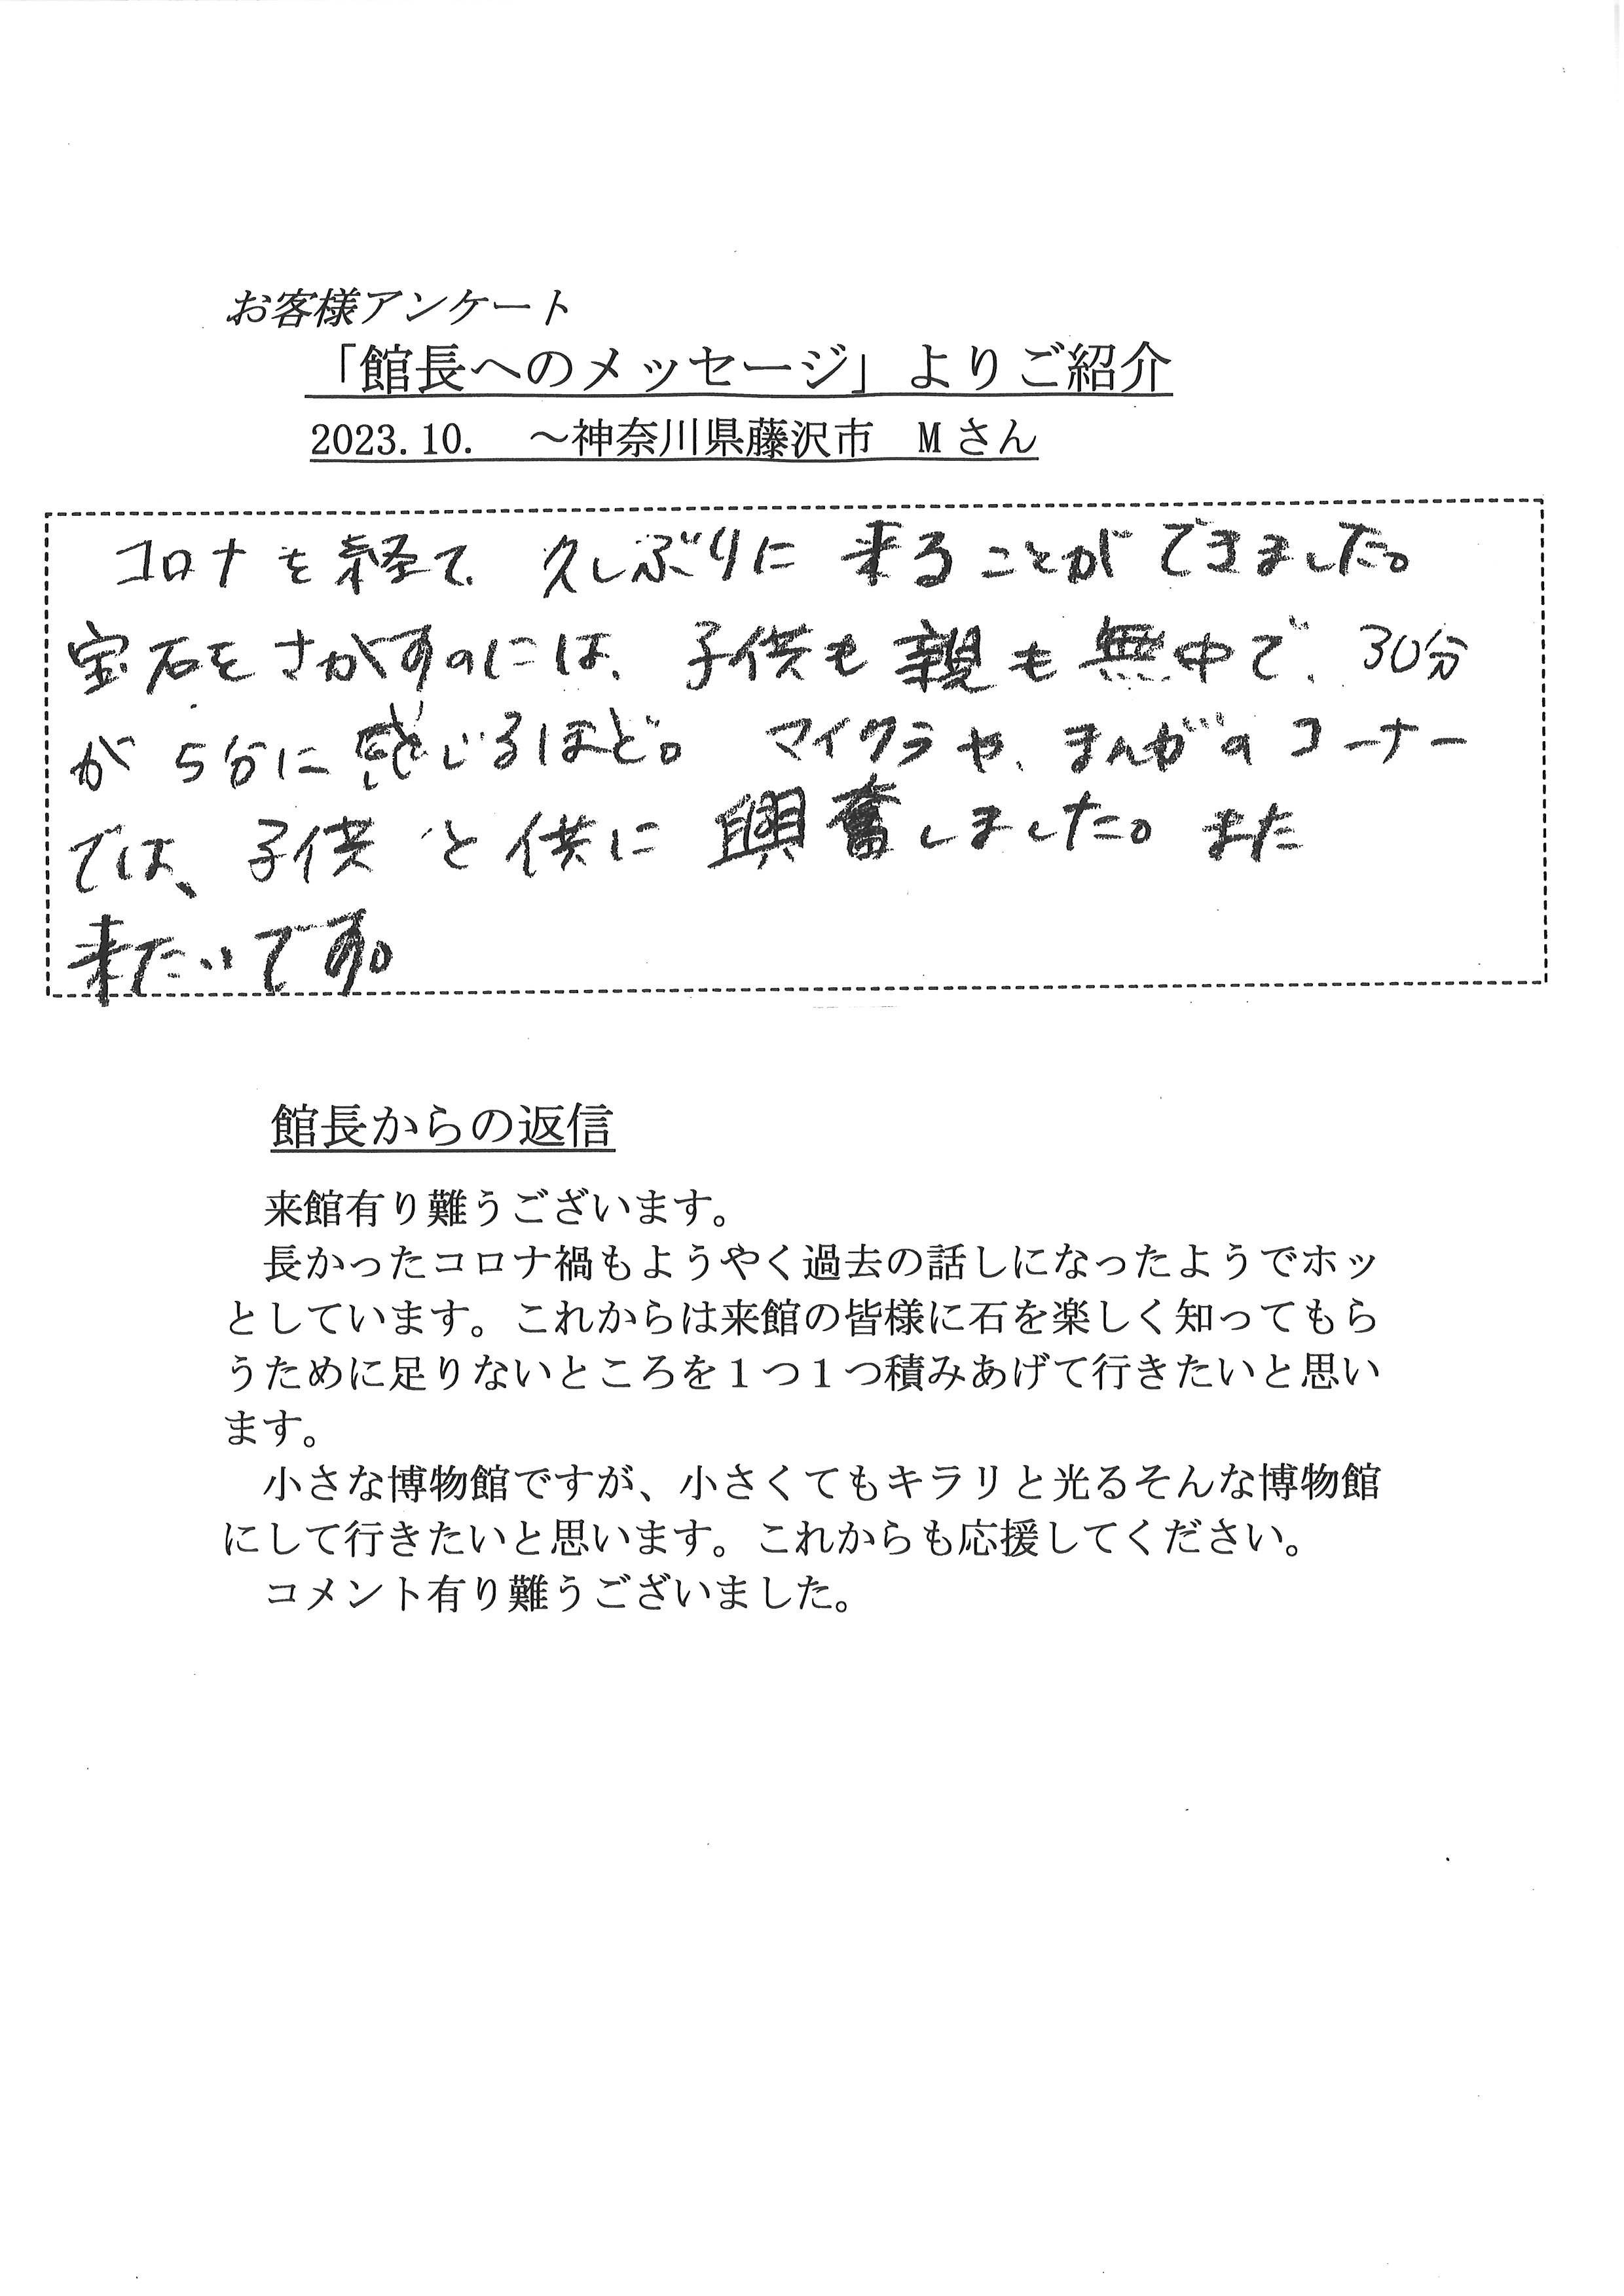 お客様アンケート
「館長へのメッセージ」よりご紹介
2023.10.　～神奈川県藤沢市　Mさん
コロナを経て、久しぶりに来ることができました。
宝石をさがすのには、子供も親も無中で、30分
が5分に感じるほど。マイクラや、まんがのコーナー
では、子供と供に興奮しました。また
来たいです。
館長からの返信
来館有り難うございます。
長かったコロナ禍もようやく過去の話しになったようでホッ
としています。これからは来館の皆様に石を楽しく知ってもら
うために足りないところを１つ１つ積みあげて行きたいと思い
ます。
小さな博物館ですが、小さくてもキラリと光るそんな博物館
にして行きたいと思います。これからも応援してください。
コメント有り難うございました。